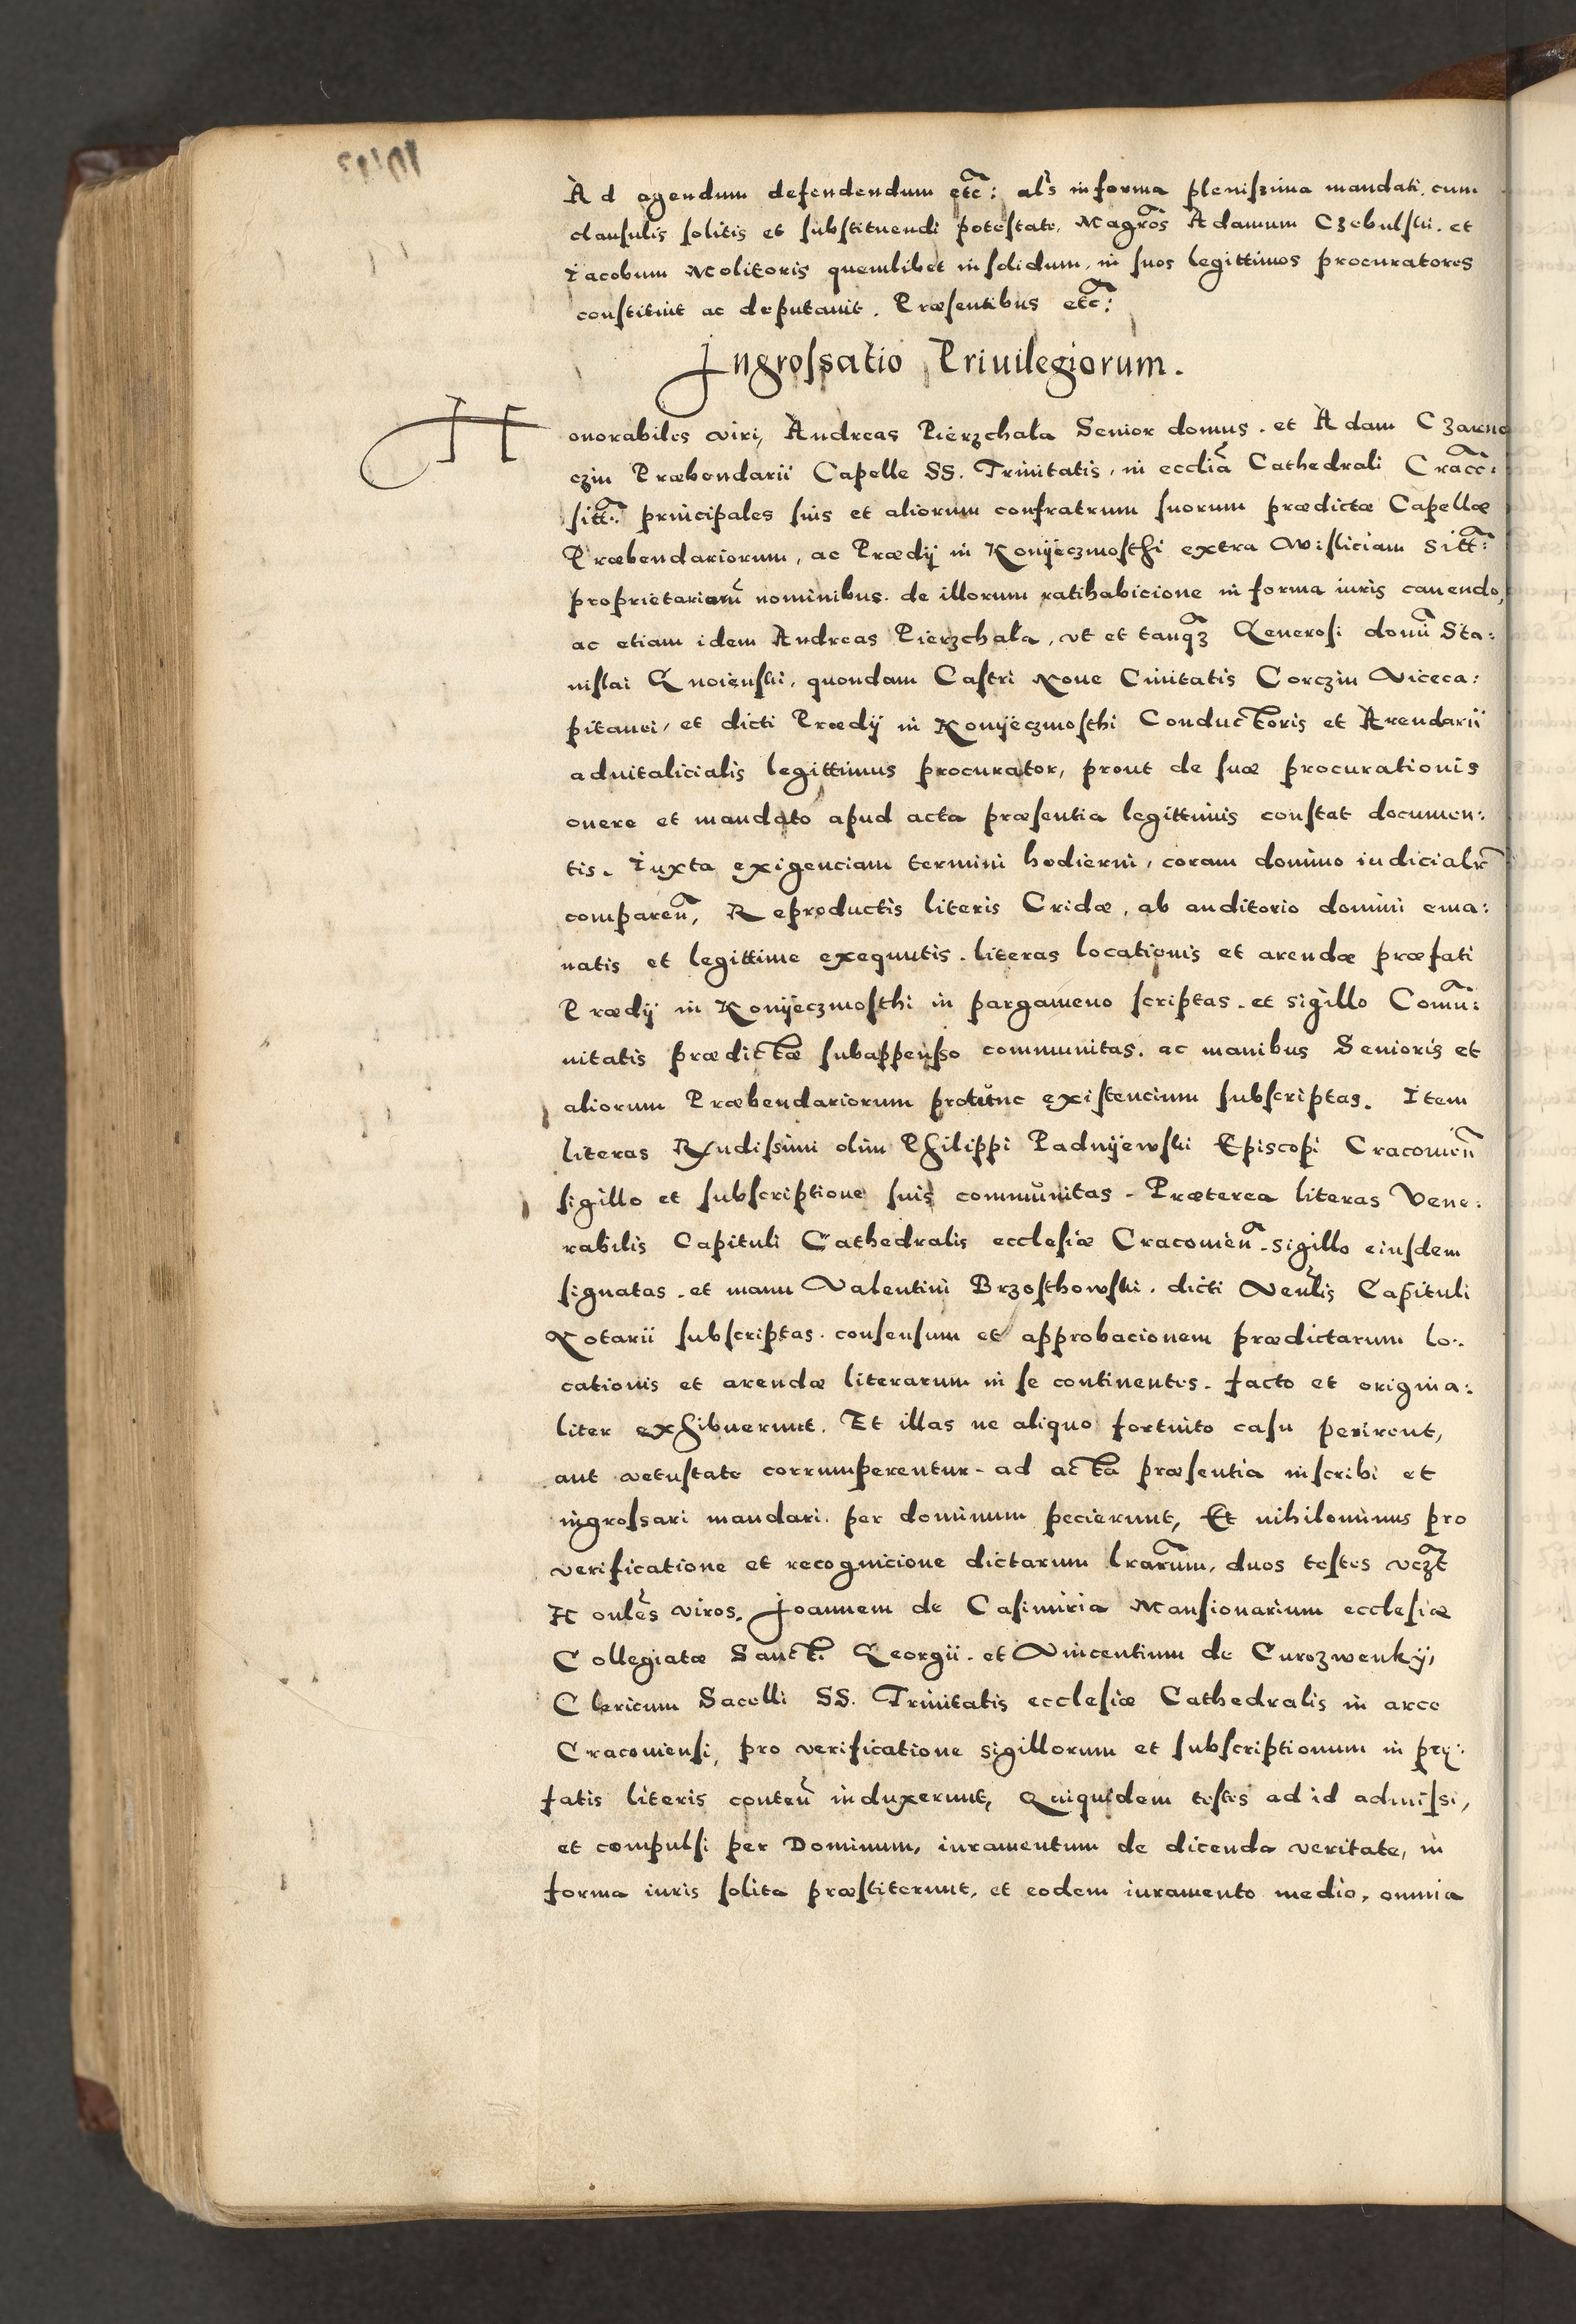 Ad agendum defendendum etc̃: als̃ in forma plenissima mandati. cum
clausulis solitis et substituendi potestate, Magr̃os Adamum Czebulski. et
Iacobum Molitoris quemlibet in solidum, in suos legittimos procuratores
constituit ac deputauit. Præsentibus etc̃:
Ingrossatio Priuilegiorum.
Honorabiles viri, Andreas Pierzchala Senior domus. et Adam Czarno
czin Præbendarii Capelle SS. Trinitatis, in eccliã Cathedrali Cracc̃:
sitt̃: principales suis et aliorum confratrum suorum prædictæ Capellæ
Præbendariorum, ac Prædÿ in Konÿeczmosthi extra Wisliciam Sitt̃:
proprietariorũ nominibus. de illorum ratihabicione in forma iuris cauendo,
ac etiam idem Andreas Pierzchala, vt et tanq̃ʒ Generosi domĩ Sta:
nislai Gnoienski, quondam Castri Noue Ciuitatis Corczin Viceca:
pitanei, et dicti Prædÿ in Konÿeczmosthi Conductoris et Arendarii
aduitalicialis legittimus procurator, prout de suæ procurationis
onere et mandato apud acta præsentia legittimis constat documen:
tis. Iuxta exigenciam termini hodierni, coram domino iudicialr̃
comparen̄, Reproductis literis Cridæ, ab auditorio domini ema:
natis et legittime exequutis. literas locationis et arendæ præfati
Prædÿ in Konÿeczmosthi in pargameno scriptas. et sigillo Comũ:
nitatis prædictæ subappenso communitas. ac manibus Senioris et
aliorum Præbendariorum protunc existencium subscriptas. Item
literas Rn̄dissimi olim Philippi Padnÿewski Episcopi Cracouien̄
sigillo et subscriptione suis communitas. Præterea literas Vene:
rabilis Capituli Cathedralis ecclesiæ Cracouien̄. sigillo eiusdem
signatas. et manu Valentini Brzosthowski. dicti Ven̄lis Capituli
Notarii subscriptas. consensum et approbacionem prædictarum lo:
cationis et arendæ literarum in se continentes. facto et origina:
liter exhibuerunt. Et illas ne aliquo fortuito casu perirent,
aut vetustate corrumperentur. ad acta præsentia inscribi et
ingrossari mandari. per dominum pecierunt, Et nihilominus pro
verificatione et recognicione dictarum lrarũm, duos testes vcʒt̃
Honl̃es viros. Joannem de Casimiria Mansionarium ecclesiæ
Collegiatæ Sancti Georgii. et Vincentium de Curozwenkÿ,
Clericum Sacelli SS. Trinitatis ecclesiæ Cathedralis in arce
Cracouiensi, pro verificatione sigillorum et subscriptionum in præ:
fatis literis conten̄ induxerunt, Quiquidem testes ad id admissi,
et compulsi per Dominum, iuramentum de dicenda veritate, in
forma iuris solita præstiterunt, et eodem iuramento medio, omnia